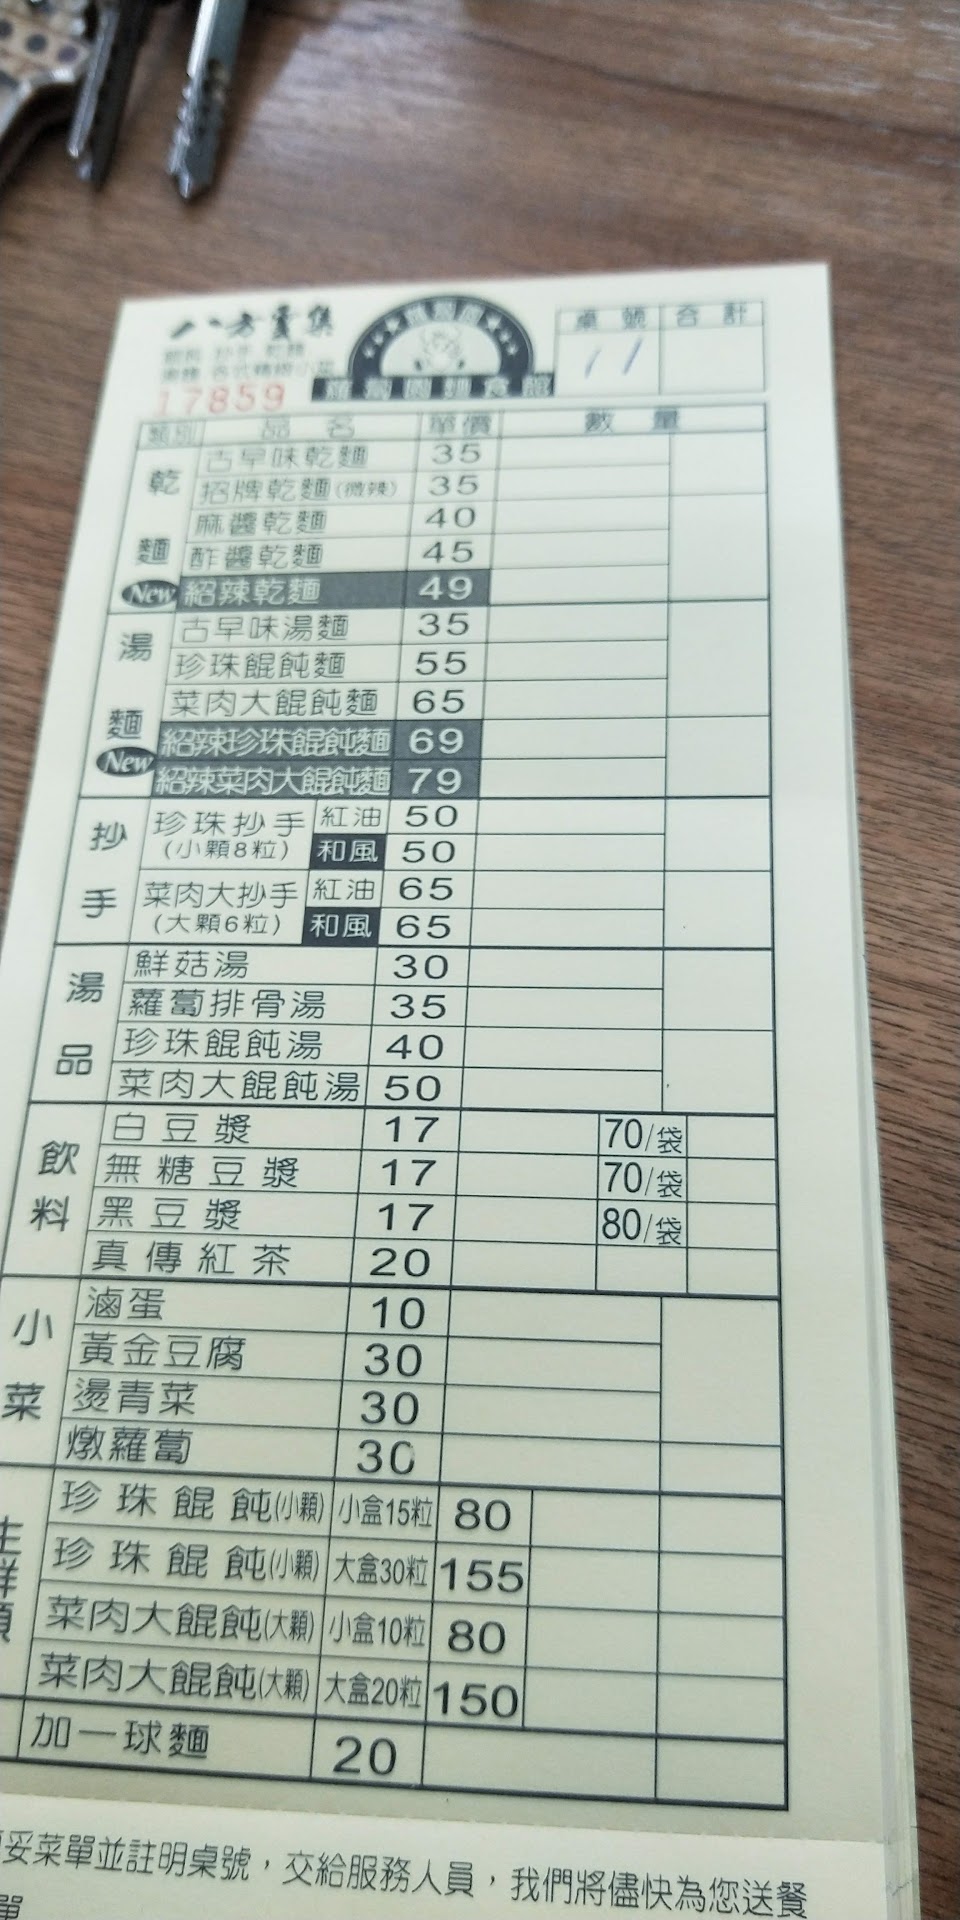 八方雲集
桌號 合計
11
17859
類別 品名 單價 數量
乾麵
古早味乾麵 35
招牌乾麵(微辣) 35
麻醬乾麵 40
酢醬乾麵 45
New 紹辣乾麵 49
湯麵
古早味湯麵 35
珍珠餛飩麵 55
菜肉大餛飩麵 65
New 紹辣珍珠餛飩麵 69
紹辣菜肉大餛飩麵 79
抄手
珍珠抄手 紅油 50
(小顆8粒) 和風 50
菜肉大抄手 紅油 65
(大顆6粒) 和風 65
湯品
鮮菇湯 30
蘿蔔排骨湯 35
珍珠餛飩湯 40
菜肉大餛飩湯 50
飲料
白豆漿 17 70/袋
無糖豆漿 17 70/袋
黑豆漿 17 80/袋
真傳紅茶 20
小菜
滷蛋 10
黃金豆腐 30
燙青菜 30
燉蘿蔔 30
珍珠餛飩(小顆) 小盒15粒 80
珍珠餛飩(小顆) 大盒30粒 155
菜肉大餛飩(大顆) 小盒10粒 80
菜肉大餛飩(大顆) 大盒20粒 150
加一球麵 20
妥菜單並註明桌號，交給服務人員，我們將儘快為您送餐
單